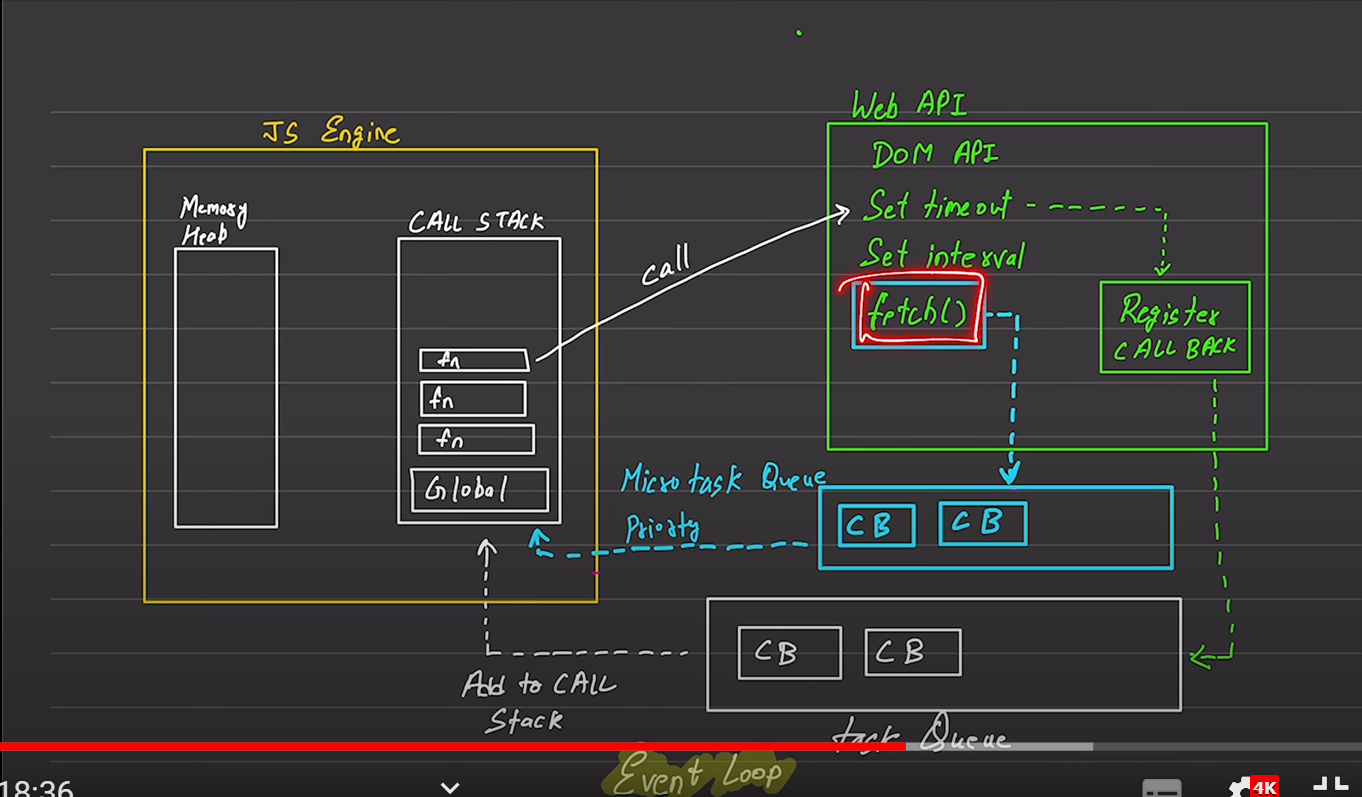 JS Engine
Memory
Heap
CALL STACK
fn
fn
fn
Global
call
Web API
DOM API
Set timeout
Set interval
fetch()
Register
CALL BACK
Microtask Queue
Priority
CB CB
CB CB
Add to CALL
Stack
task Queue
Event Loop
18:36
4K